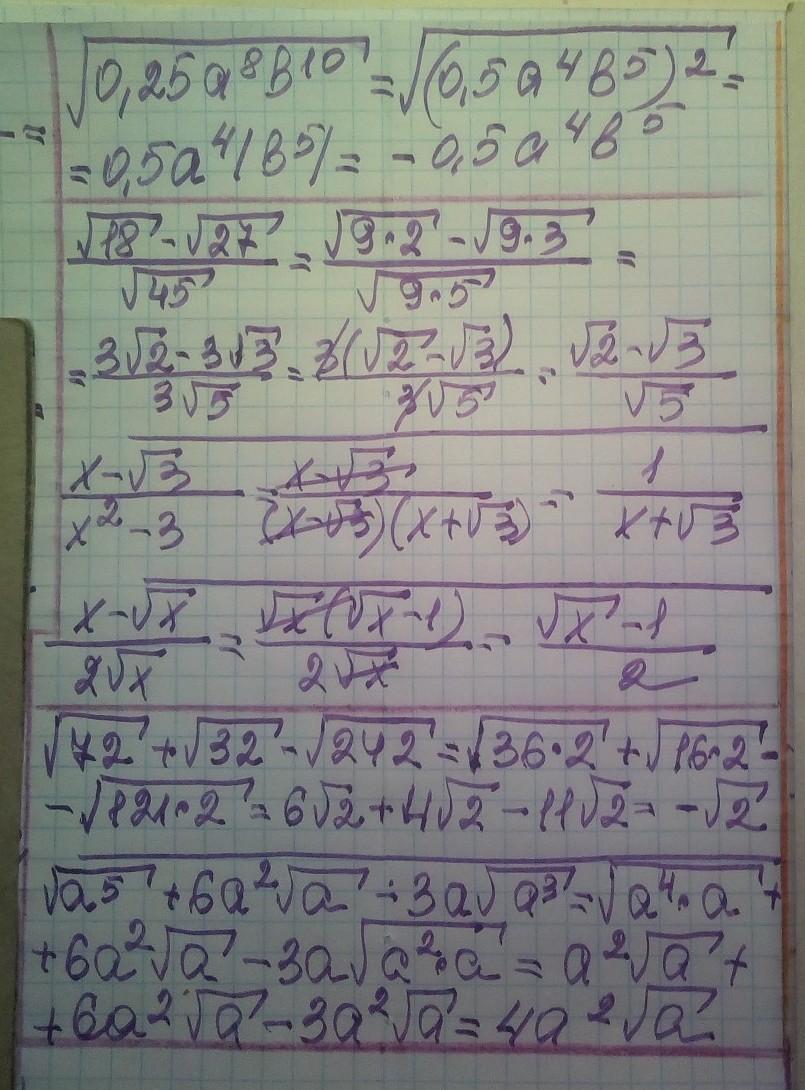 √0,25a⁸b¹⁰ = √(0,5a⁴b⁵)² =
= 0,5a⁴|b⁵| = - 0,5a⁴b⁵
(√18 - √27)/√45 = (√9·2 - √9·3)/√9·5 =
= (3√2 - 3√3)/3√5 = 3(√2 - √3)/3√5 = (√2 - √3)/√5
(x - √3)/(x² - 3) = (x - √3)/(x - √3)(x + √3) = 1/(x + √3)
(x - √x)/2√x = √x(√x - 1)/2√x = (√x - 1)/2
√72 + √32 - √242 = √36·2 + √16·2 -
- √121·2 = 6√2 + 4√2 - 11√2 = - √2
√a⁵ + 6a²√a - 3a√a³ = √a⁴·a +
+ 6a²√a - 3a√a²·a = a²√a +
+ 6a²√a - 3a²√a = 4a²√a